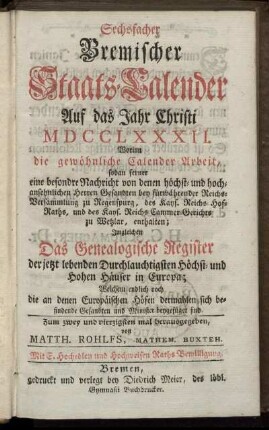 Sechsfacher
Bremischer
Staats-Calender
Auf das Jahr Christi
MDCCLXXXII.
Worinn
die gewöhnliche Calender Arbeit,
sodan ferner
eine besondre Nachricht von denen höchst- und hoch-
ansehnlichen Herren Gesandten bey fürwährender Reichs-
Versammlung zu Regenspurg, des Kays. Reichs-Hof-
Raths, und des Kays. Reichs-Cammer-Gerichts
zu Wetzlar, enthalten;
Imgleichen
Das Genealogische Register
der jetzt lebenden Durchlauchtigsten Höchst- und
Hohen Häuser in Europa;
Welchem endlich noch
die an denen Europäischen Höfen dermahlen sich be-
findende Gesandten und Minister beygefüget sind.
Zum zwey und vierzigsten mal herausgegeben,
von
MATTH. ROHLFS, MATHEM. BUXTEH.
Mit E. Hochedlen und Hochweisen Raths Bewilligung.
Bremen,
gedruckt und verlegt bey Diedrich Meier, des löbl.
Gymnasii Buchdrucker.